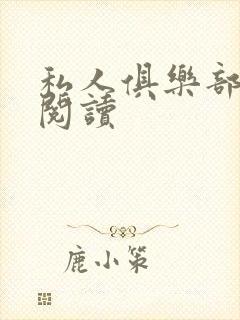 私人俱樂部
閱讀
鹿小策